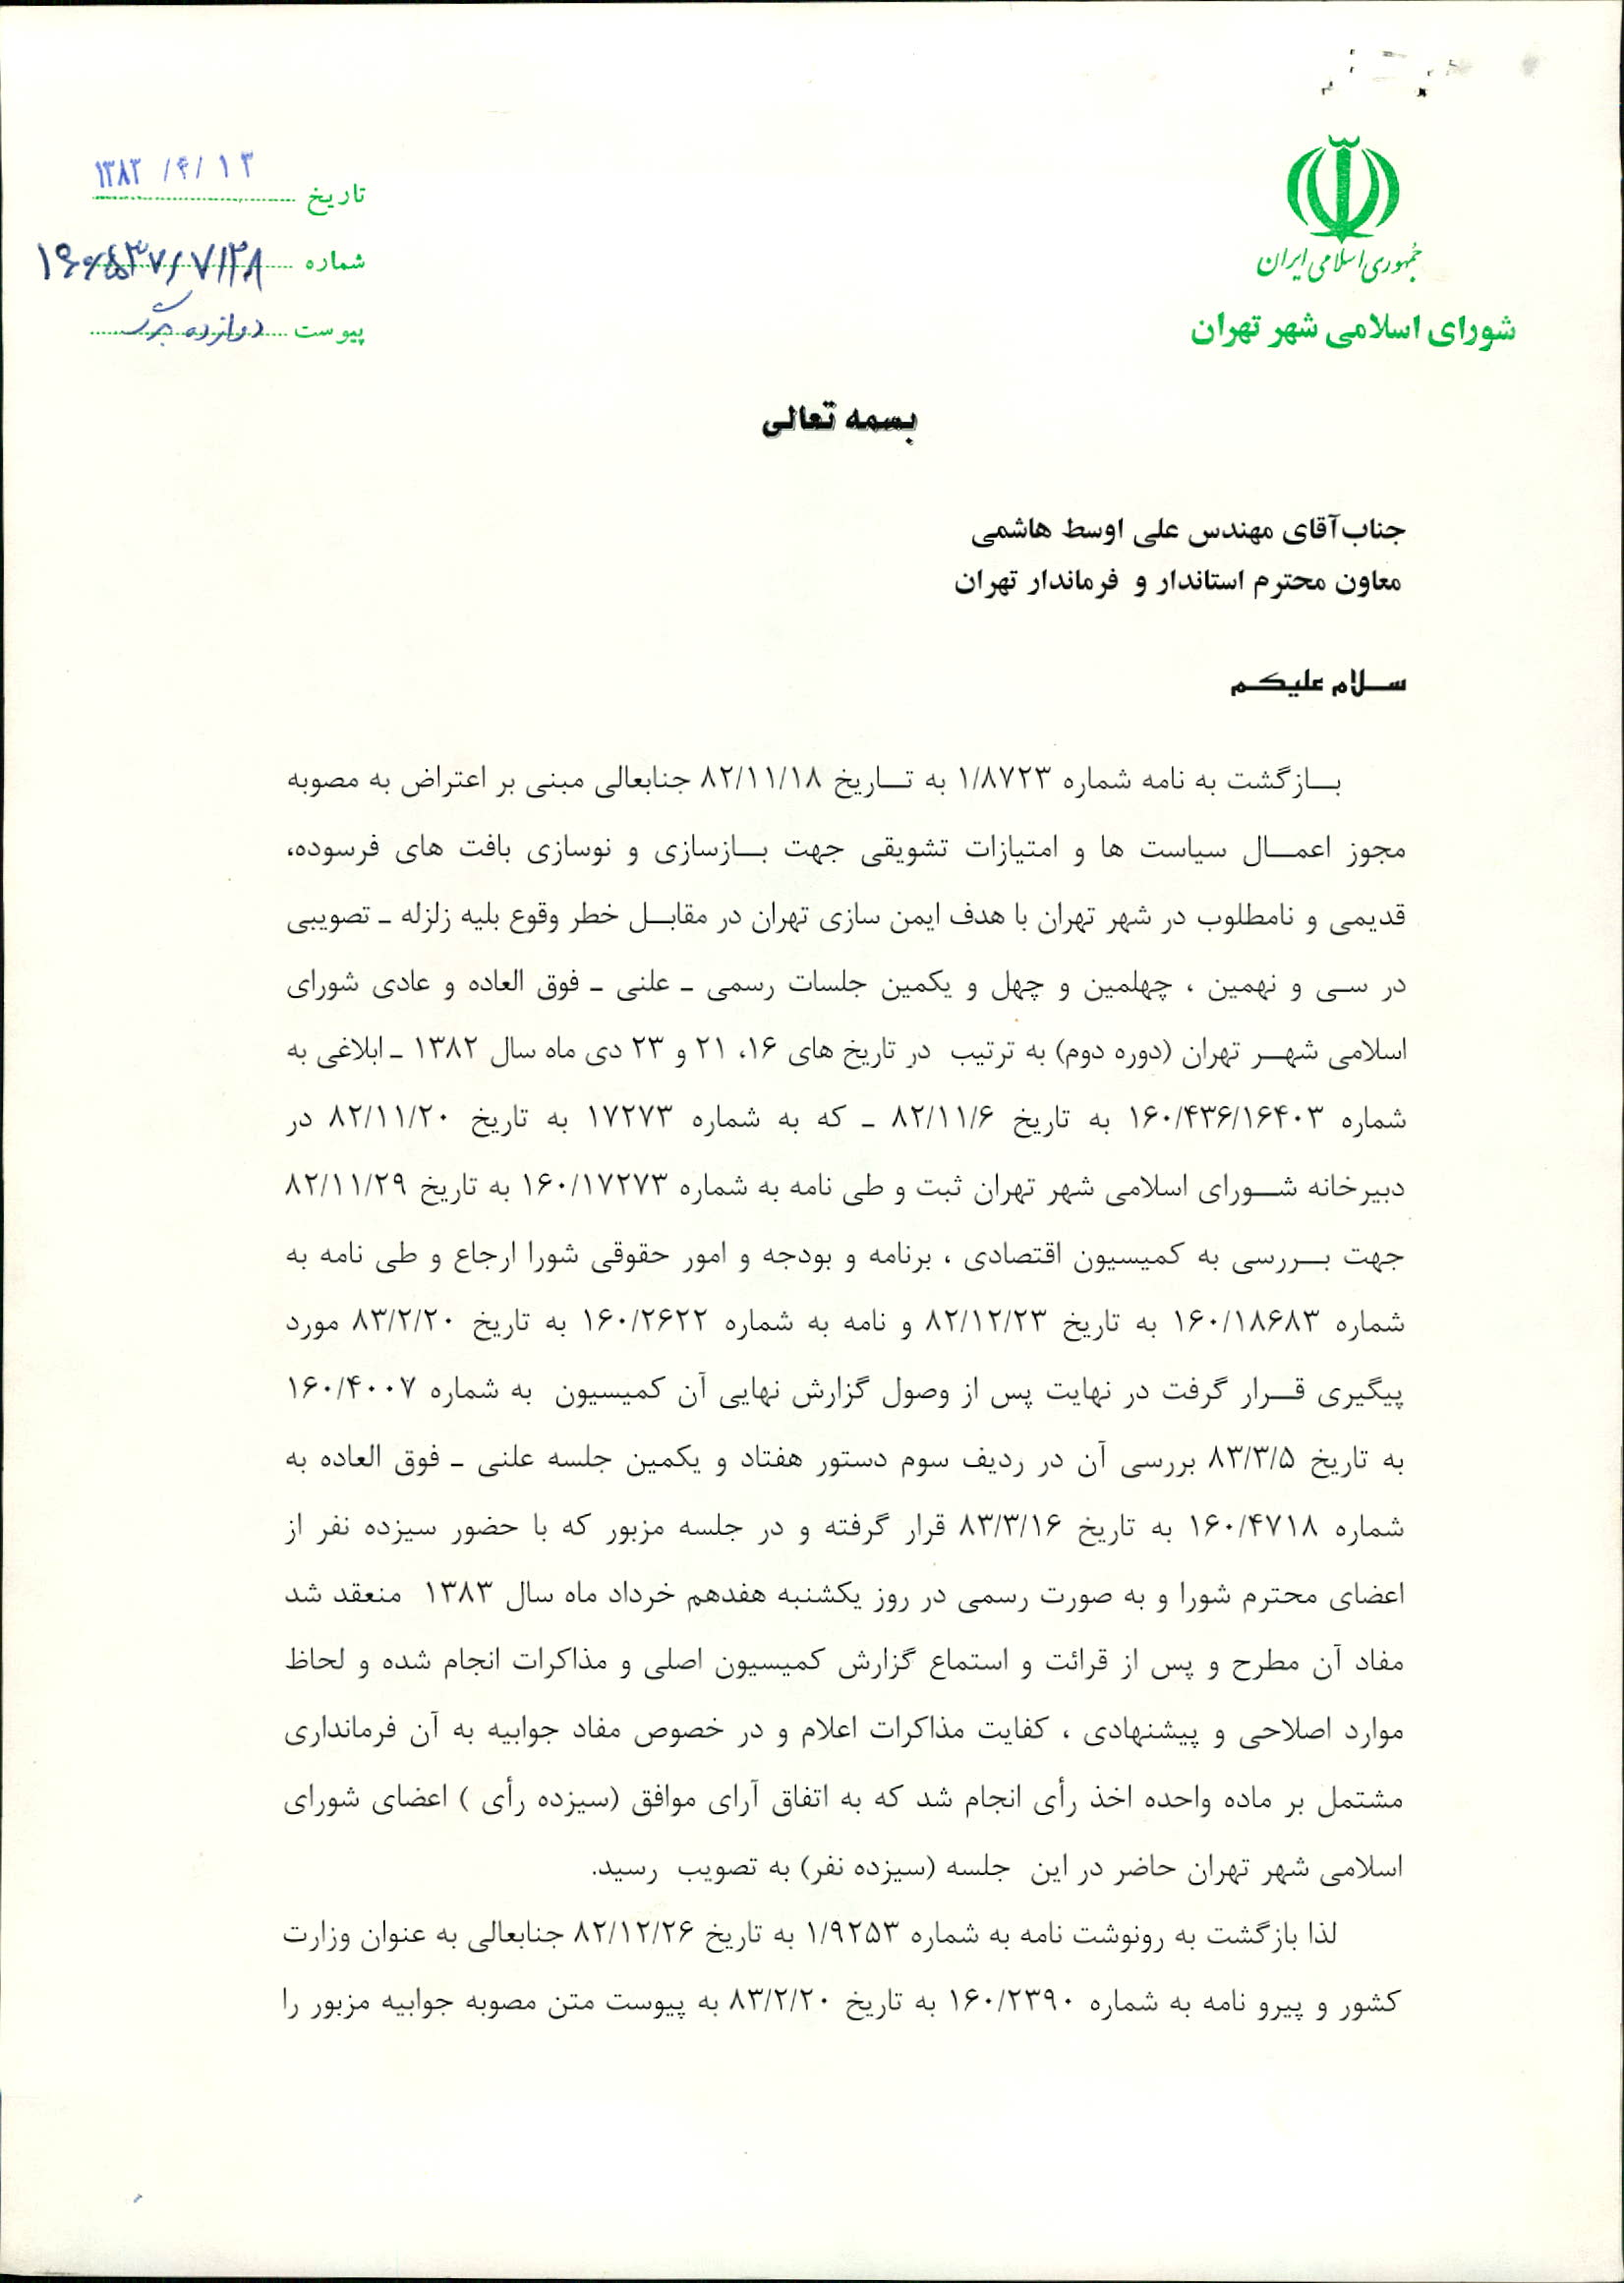 جمهوری اسلامی ایران
شورای اسلامی شهر تهران
تاریخ ۱۳۸۳/۴/۱۳
شماره ۱۶۰/۵۳۷/۷۱۳۸
پیوست دوازده برگ
بسمه تعالی
جناب آقای مهندس علی اوسط هاشمی
معاون محترم استاندار و فرماندار تهران
سلام علیکم
بازگشت به نامه شماره ۱/۸۷۲۳ به تاریخ ۸۲/۱۱/۱۸ جنابعالی مبنی بر اعتراض به مصوبه
مجوز اعمال سیاست ها و امتیازات تشویقی جهت بازسازی و نوسازی بافت های فرسوده،
قدیمی و نامطلوب در شهر تهران با هدف ایمن سازی تهران در مقابل خطر وقوع بلیه زلزله ـ تصویبی
در سی و نهمین ، چهلمین و چهل و یکمین جلسات رسمی ـ علنی ـ فوق العاده و عادی شورای
اسلامی شهر تهران (دوره دوم) به ترتیب در تاریخ های ۱۶، ۲۱ و ۲۳ دی ماه سال ۱۳۸۲ ـ ابلاغی به
شماره ۱۶۰/۴۳۶/۱۶۴۰۳ به تاریخ ۸۲/۱۱/۶ ـ که به شماره ۱۷۲۷۳ به تاریخ ۸۲/۱۱/۲۰ در
دبیرخانه شورای اسلامی شهر تهران ثبت و طی نامه به شماره ۱۶۰/۱۷۲۷۳ به تاریخ ۸۲/۱۱/۲۹
جهت بررسی به کمیسیون اقتصادی ، برنامه و بودجه و امور حقوقی شورا ارجاع و طی نامه به
شماره ۱۶۰/۱۸۶۸۳ به تاریخ ۸۲/۱۲/۲۳ و نامه به شماره ۱۶۰/۲۶۲۲ به تاریخ ۸۳/۲/۲۰ مورد
پیگیری قرار گرفت در نهایت پس از وصول گزارش نهایی آن کمیسیون به شماره ۱۶۰/۴۰۰۷
به تاریخ ۸۳/۳/۵ بررسی آن در ردیف سوم دستور هفتاد و یکمین جلسه علنی ـ فوق العاده به
شماره ۱۶۰/۴۷۱۸ به تاریخ ۸۳/۳/۱۶ قرار گرفته و در جلسه مزبور که با حضور سیزده نفر از
اعضای محترم شورا و به صورت رسمی در روز یکشنبه هفدهم خرداد ماه سال ۱۳۸۳ منعقد شد
مفاد آن مطرح و پس از قرائت و استماع گزارش کمیسیون اصلی و مذاکرات انجام شده و لحاظ
موارد اصلاحی و پیشنهادی ، کفایت مذاکرات اعلام و در خصوص مفاد جوابیه به آن فرمانداری
مشتمل بر ماده واحده اخذ رأی انجام شد که به اتفاق آرای موافق (سیزده رأی ) اعضای شورای
اسلامی شهر تهران حاضر در این جلسه (سیزده نفر) به تصویب رسید.
لذا بازگشت به رونوشت نامه به شماره ۱/۹۲۵۳ به تاریخ ۸۲/۱۲/۲۶ جنابعالی به عنوان وزارت
کشور و پیرو نامه به شماره ۱۶۰/۲۳۹۰ به تاریخ ۸۳/۲/۲۰ به پیوست متن مصوبه جوابیه مزبور را